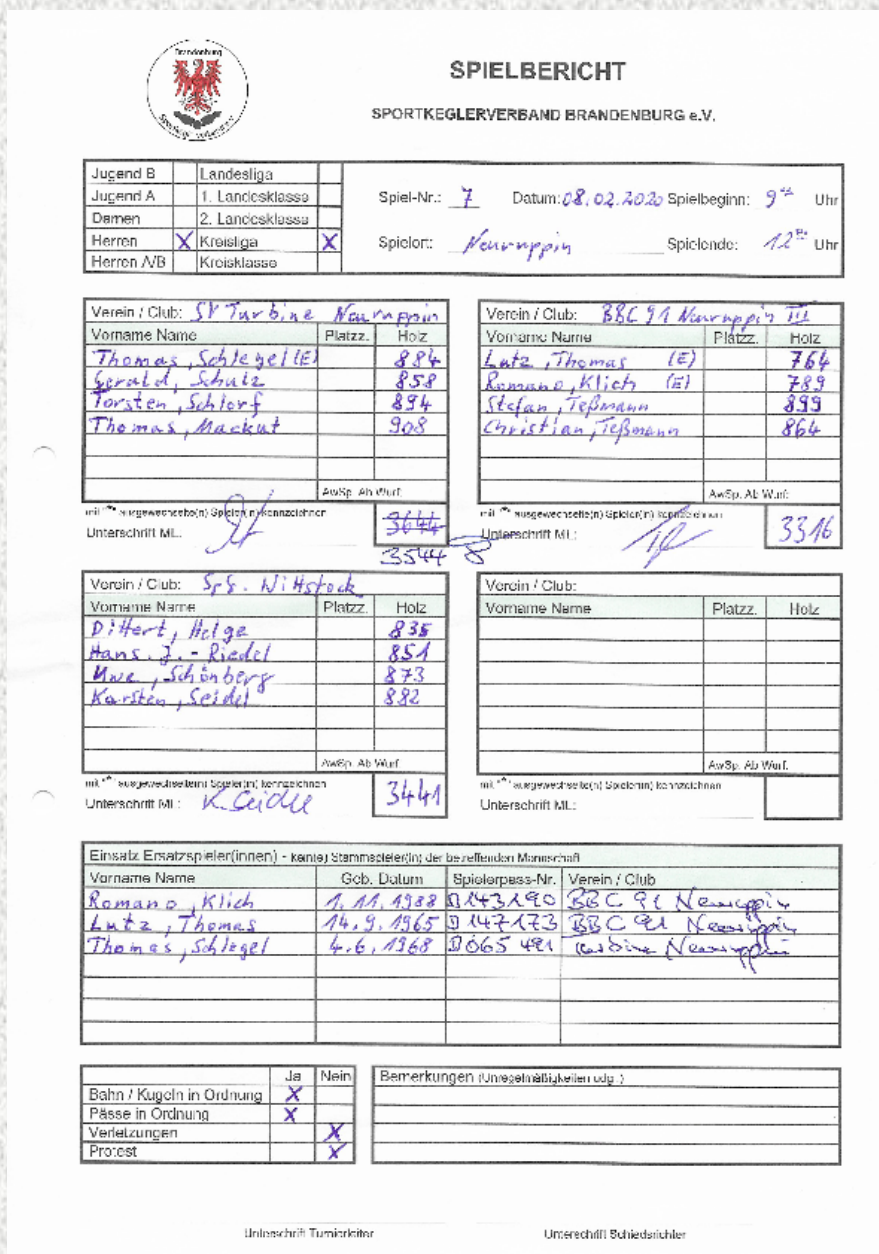 Brandenburg
SPIELBERICHT
SPORTKEGLERVERBAND BRANDENBURG e.V.
Jugend B Landesliga
Jugend A 1. Landesklasse
Damen 2. Landesklasse
Herren X Kreisliga X
Herren A/B Kreisklasse
Spiel-Nr.: 7 Datum: 08.02.2020 Spielbeginn: 9 Uhr
Spielort: Neuruppin Spielende: 12 Uhr
Verein / Club: SV Turbine Neuruppin
Vorname Name Platzz. Holz
Thomas, Schlegel (E) 884
Gerald, Schulz 858
Torsten, Schlorf 894
Thomas, Mackut 908
AwSp. Ab Wurf:
mit "*" ausgewechselte(n) Spieler(in) kennzeichnen
Unterschrift ML: 3644
3544
Verein / Club: BBC 91 Neuruppin III
Vorname Name Platzz. Holz
Lutz, Thomas (E) 764
Romano, Klich (E) 789
Stefan, Teßmann 899
Christian, Teßmann 864
AwSp. Ab Wurf:
mit "*" ausgewechselte(n) Spieler(in) kennzeichnen
Unterschrift ML: 3316
Verein / Club: Spf. Wittstock
Vorname Name Platzz. Holz
Dittert, Helge 835
Hans. J. - Riedel 851
Uwe, Schönberg 873
Karsten, Seidel 882
AwSp. Ab Wurf:
mit "*" ausgewechselte(n) Spieler(in) kennzeichnen
Unterschrift ML: K. Seidel 3441
Verein / Club:
Vorname Name Platzz. Holz
AwSp. Ab Wurf:
mit "*" ausgewechselte(n) Spieler(in) kennzeichnen
Unterschrift ML:
Einsatz Ersatzspieler(innen) - keine) Stammspieler(in) der betreffenden Mannschaft
Vorname Name Geb. Datum Spielerpass-Nr. Verein / Club
Romano, Klich 1.11.1988 D143190 BBC 91 Neuruppin
Lutz, Thomas 14.9.1965 D147173 BBC 91 Neuruppin
Thomas, Schlegel 4.6.1968 D065 491 Turbine Neuruppin
Ja Nein
Bahn / Kugeln in Ordnung X
Pässe in Ordnung X
Verletzungen X
Protest X
Bemerkungen (Unregelmäßigkeiten udg.)
Unterschrift Turnierleiter Unterschrift Schiedsrichter